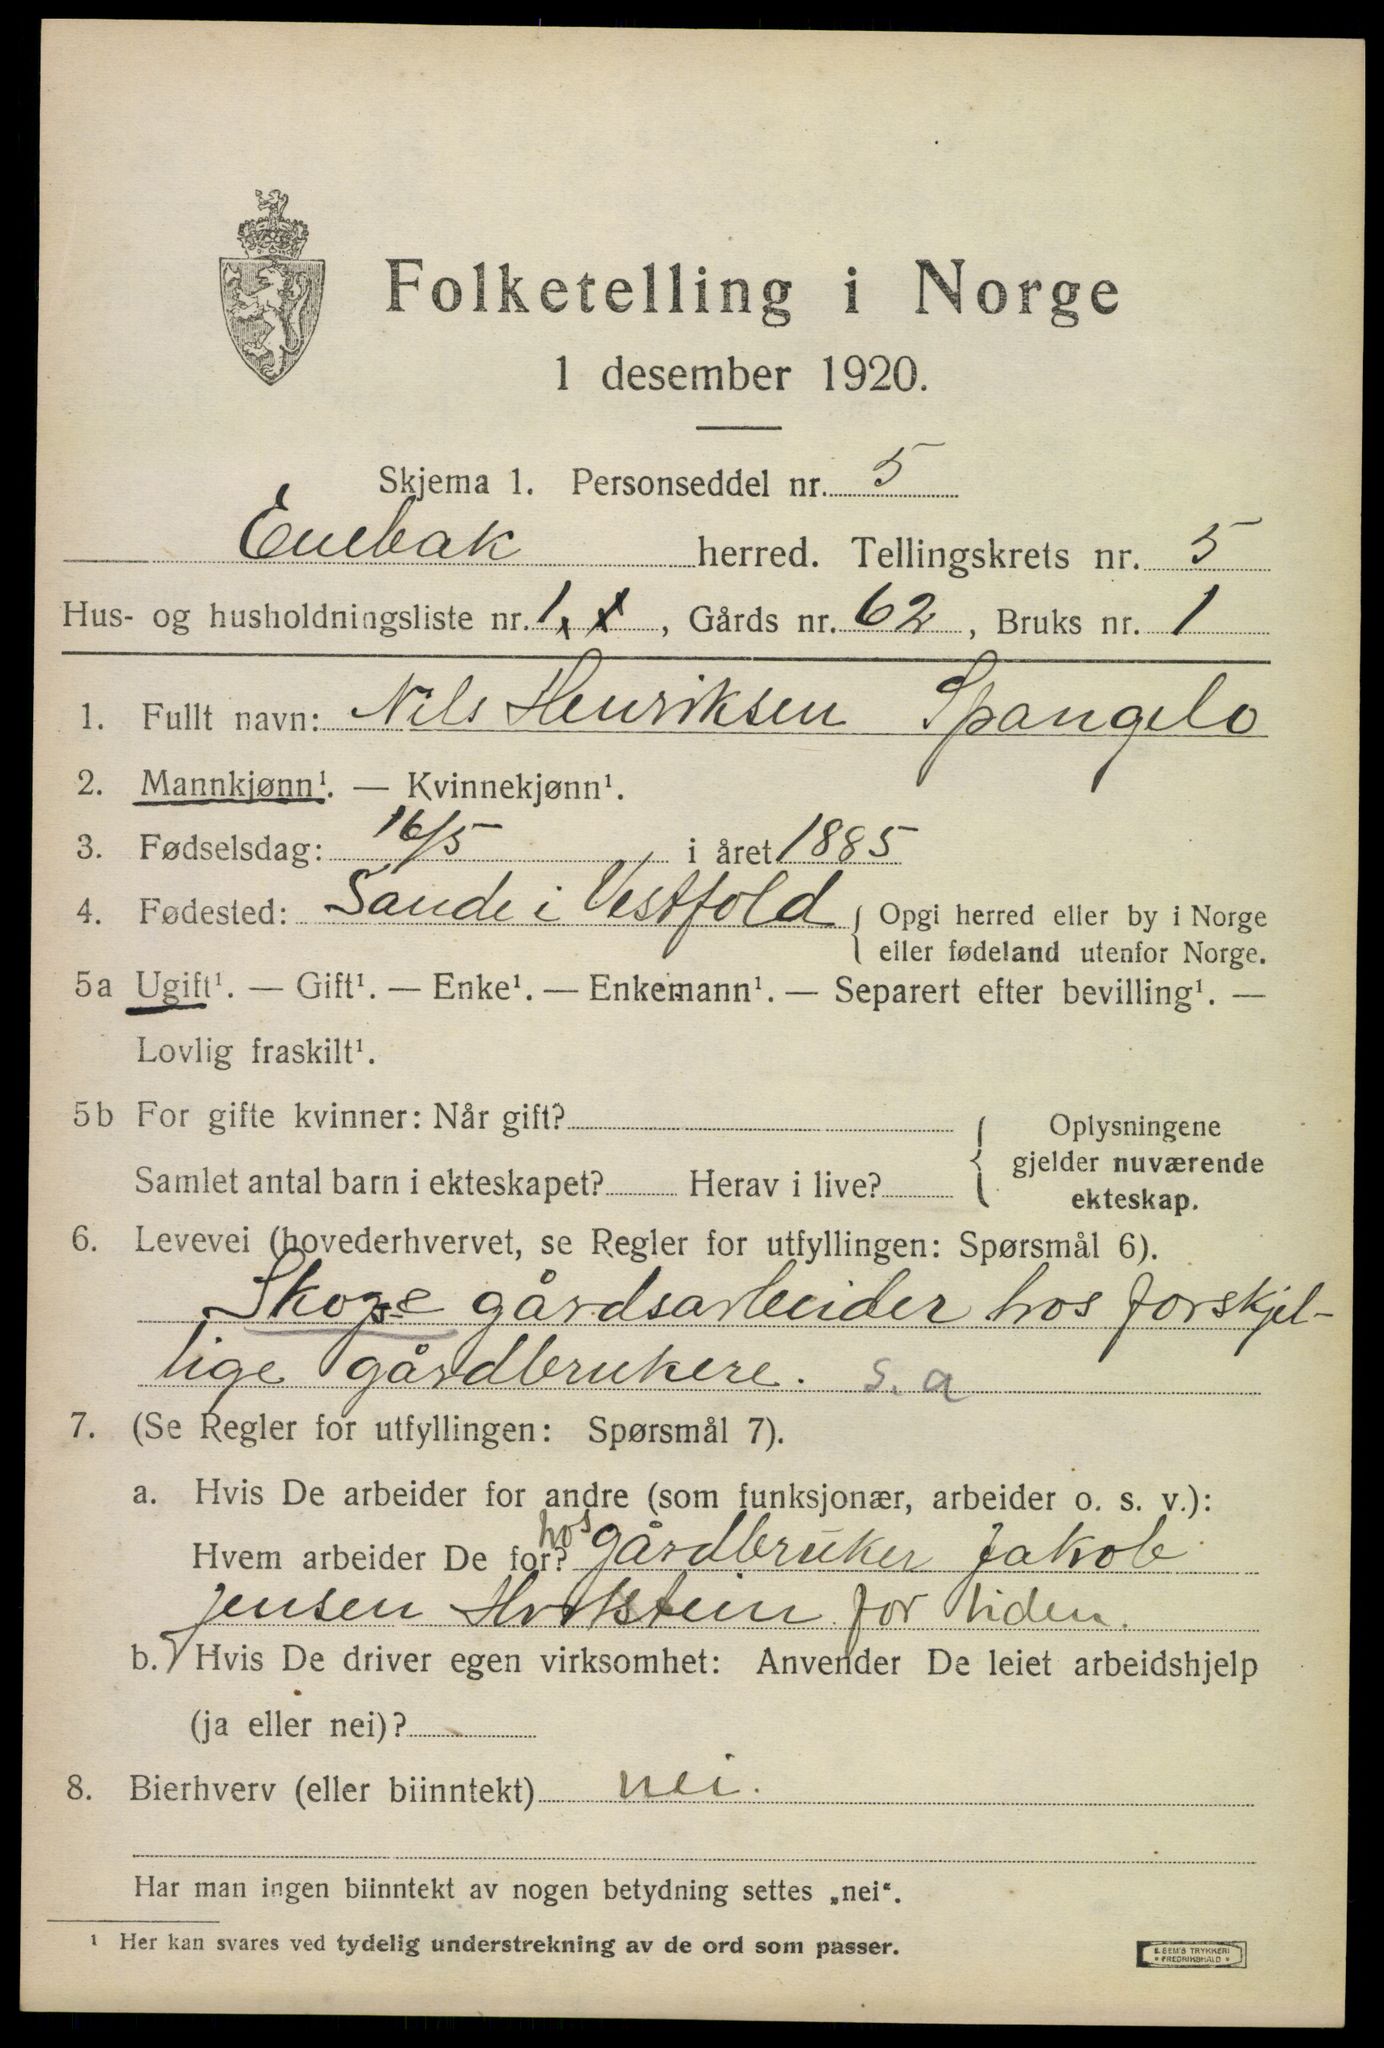 Folketelling i Norge
1 desember 1920.
Skjema 1. Personseddel nr. 5
Enebak herred. Tellingskrets nr. 5
Hus- og husholdningsliste nr. 1, Gårds nr. 62, Bruks nr. 1
1. Fullt navn: Nils Henriksen Spangelo
2. Mannkjønn¹. — Kvinnekjønn¹.
3. Fødselsdag: 16/5 i året 1885
4. Fødested: Sande i Vestfold { Opgi herred eller by i Norge
eller fødeland utenfor Norge.
5a Ugift¹. — Gift¹. — Enke¹. — Enkemann¹. — Separert efter bevilling¹. —
Lovlig fraskilt¹.
5b For gifte kvinner: Når gift? { Oplysningene
gjelder nuværende
Samlet antal barn i ekteskapet? Herav i live?
ekteskap.
6. Levevei (hovederhvervet, se Regler for utfyllingen: Spørsmål 6).
gårdsarbeider hos forskjel-
lige gårdbrukere. s. a
7. (Se Regler for utfyllingen: Spørsmål 7).
a. Hvis De arbeider for andre (som funksjonær, arbeider o. s. v.):
Hvem arbeider De for? hos gårdbruker Jakob
Jensen for tiden.
b. Hvis De driver egen virksomhet: Anvender De leiet arbeidshjelp
(ja eller nei)?
8. Bierhverv (eller biinntekt) nei.
Har man ingen biinntekt av nogen betydning settes „nei“.
¹ Her kan svares ved tydelig understrekning av de ord som passer.
E. SEM'S TRYKKERI
* FREDRIKSHALD *